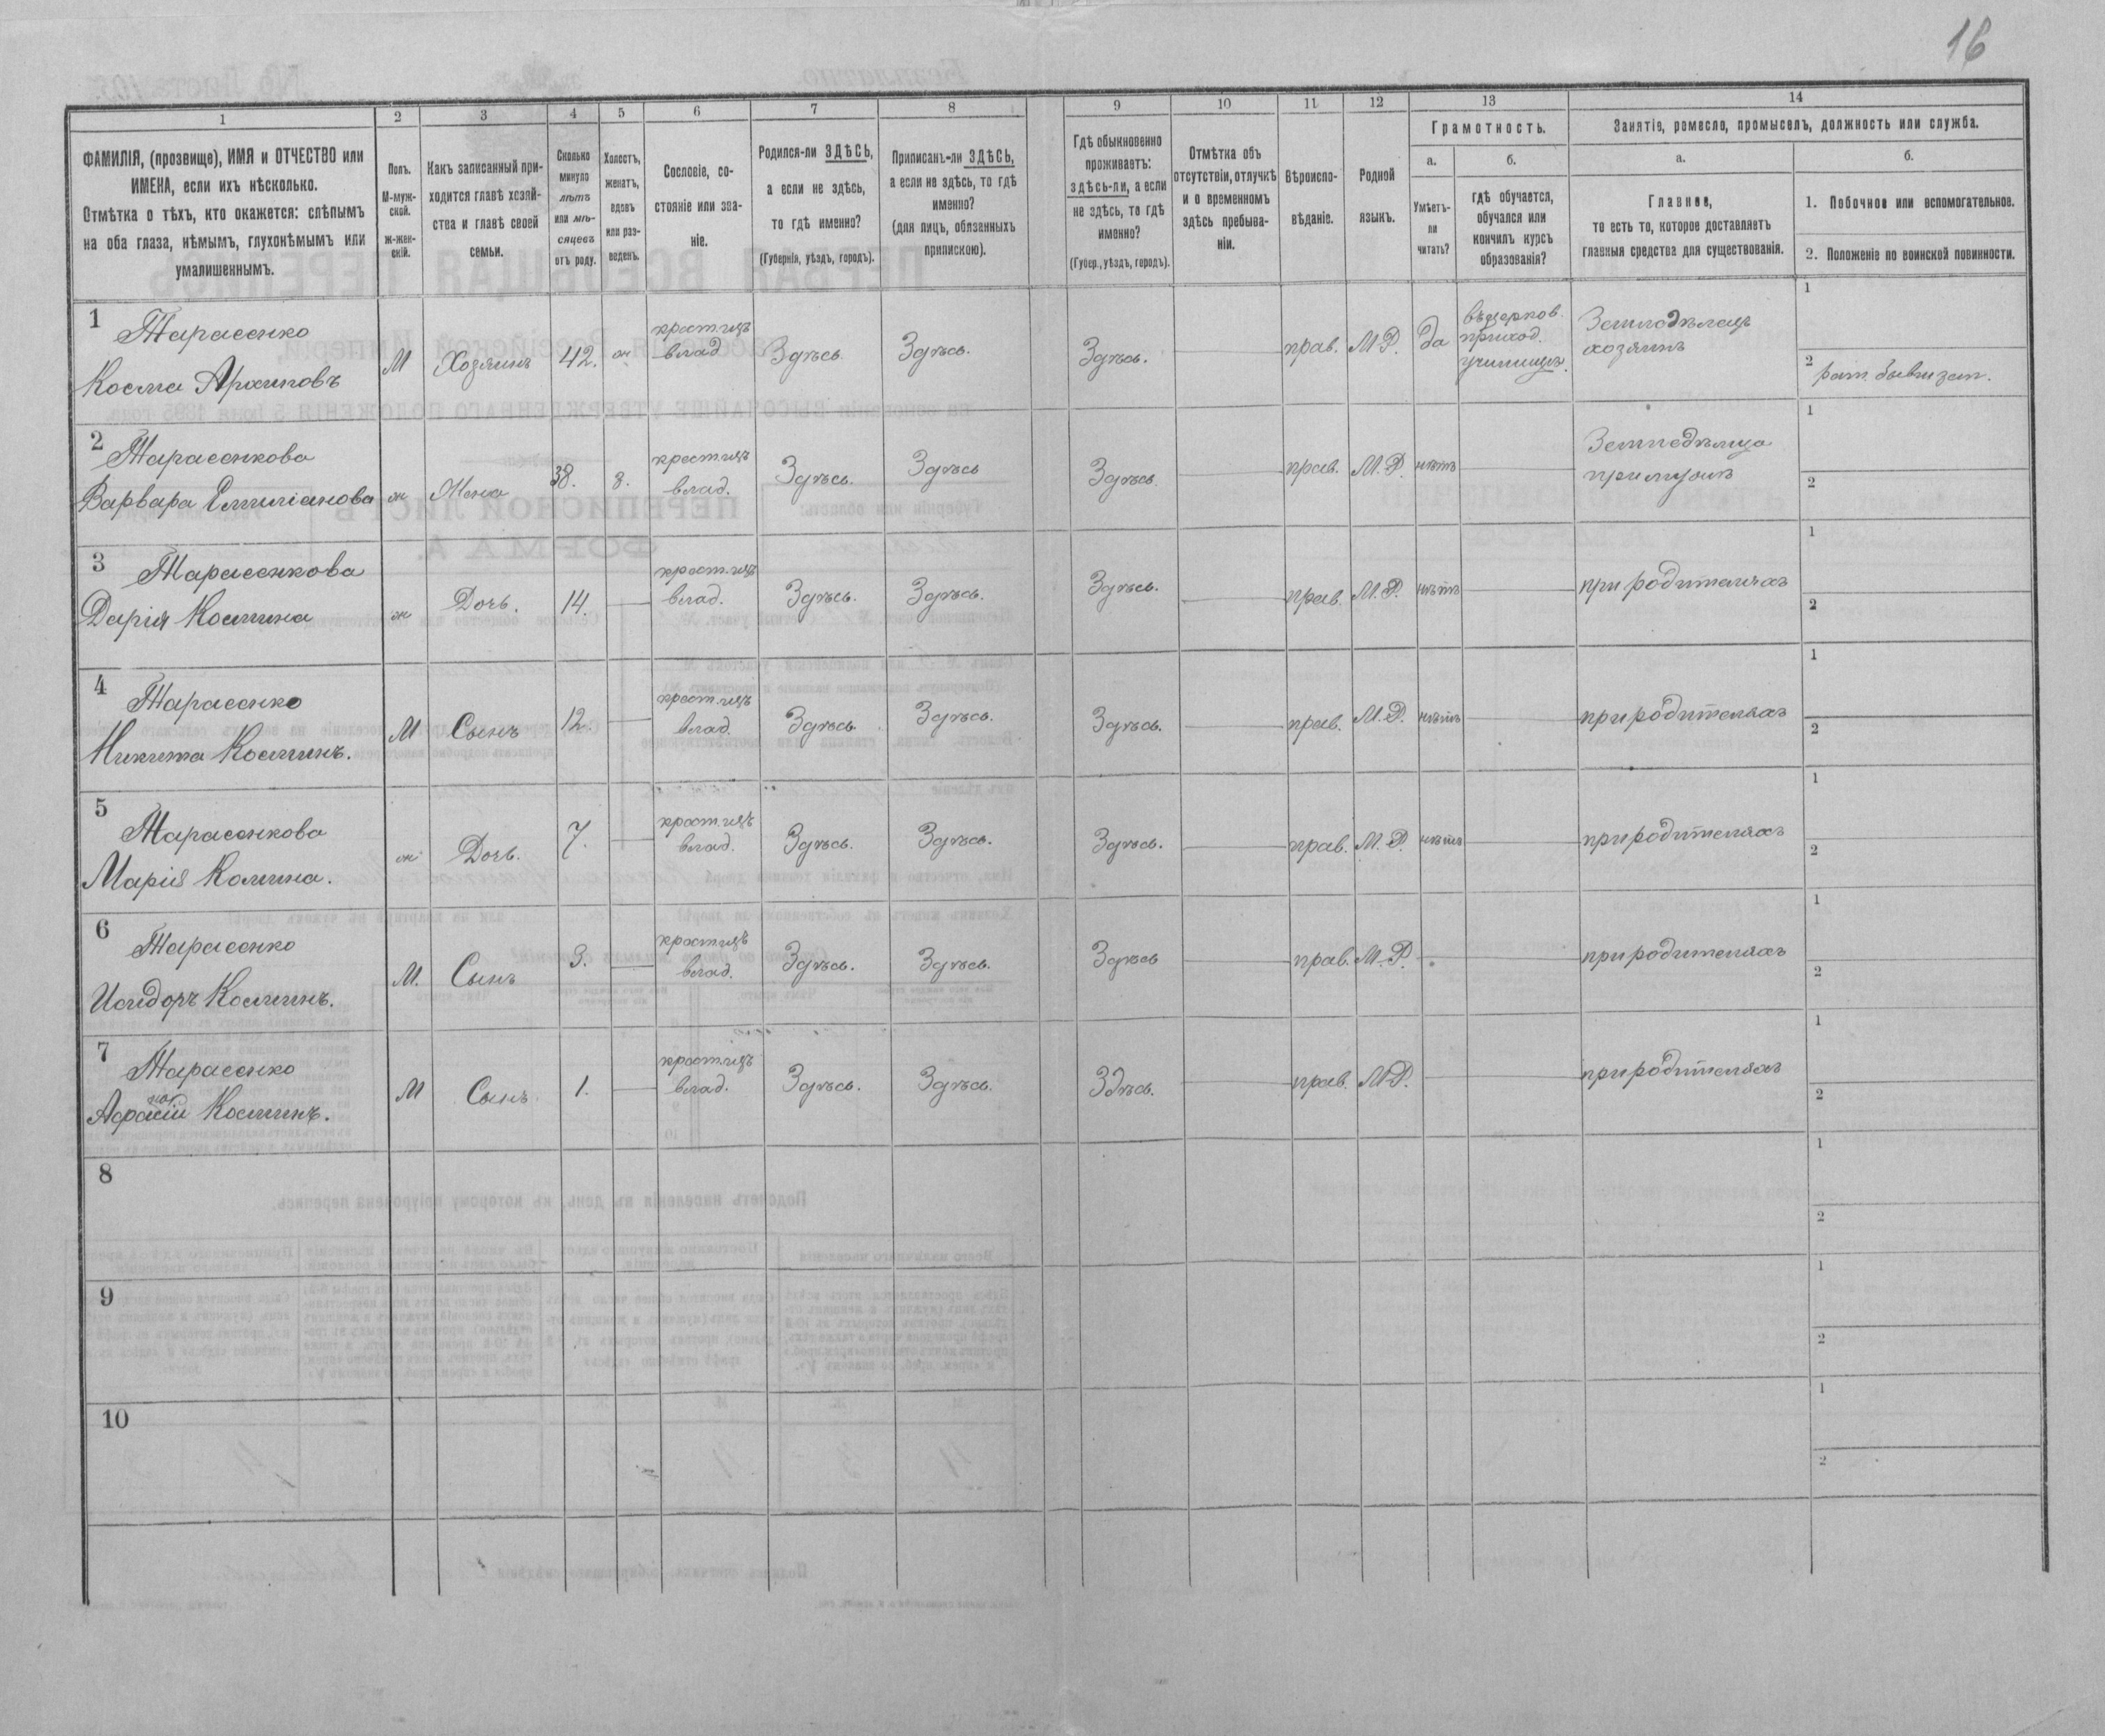 16
1 2 3 4 5 6 7 8 9 10 11 12 13 14
ФАМИЛІЯ, (прозвище), ИМЯ и ОТЧЕСТВО или
ИМЕНА, если ихъ нѣсколько.
Отмѣтка о тѣхъ, кто окажется: слѣпымъ
на оба глаза, нѣмымъ, глухонѣмымъ или
умалишеннымъ.
Полъ.
М-муж-
ской.
ж-жен-
скій.
Какъ записанный при-
ходится главѣ хозяй-
ства и главѣ своей
семьи.
Сколько
минуло
лѣтъ
или мѣ-
сяцевъ
отъ роду.
Холостъ,
женатъ,
вдовъ
или раз-
веденъ.
Сословіе, со-
стояніе или зва-
ніе.
Родился-ли ЗДѢСЬ,
а если не здѣсь,
то гдѣ именно?
(Губернія, уѣздъ, городъ).
Приписанъ-ли ЗДѢСЬ,
а если не здѣсь, то гдѣ
именно?
(для лицъ, обязанныхъ
припискою).
Гдѣ обыкновенно
проживаетъ:
здѣсь-ли, а если
не здѣсь, то гдѣ
именно?
(Губер., уѣздъ, городъ).
Отмѣтка объ
отсутствіи, отлучкѣ
и о временномъ
здѣсь пребыва-
ніи.
Вѣроиспо-
вѣданіе.
Родной
языкъ.
Грамотность.
а.
Умѣетъ-
ли
читать?
б.
гдѣ обучается,
обучался или
кончилъ курсъ
образованія?
Занятіе, ремесло, промыселъ, должность или служба.
а.
Главное,
то есть то, которое доставляетъ
главныя средства для существованія.
б.
1. Побочное или вспомогательное.
2. Положеніе по воинской повинности.
1 Тарасенко
Косма Архиповъ
М Хозяинъ 42. ж крест. изъ
влад Здѣсь Здѣсь. Здѣсь. — прав. М.Р. да въ церков.
приход.
училищѣ. Земледѣлецъ
хозяинъ
1
2 рат. бывш зап.
2 Тарасенкова
Варвара Емиліанова
ж Жена 38. з. крест. изъ
влад. Здѣсь. Здѣсь Здѣсь — прав. М.Р. нѣтъ — Земледѣлица
при мужѣ
1
2
3 Тарасенкова
Дарія Космина
ж Дочь. 14. — крест. изъ
влад. Здѣсь. Здѣсь. Здѣсь. — прав. М.Р. нѣтъ — при родителяхъ
1
2
4 Тарасенко
Никита Косминъ.
М Сынъ 12. — крест. изъ
влад. Здѣсь Здѣсь. Здѣсь. — прав. М.Р. нѣтъ — при родителяхъ
1
2
5 Тарасенкова
Марія Космина.
ж Дочь. 7. — крест. изъ
влад. Здѣсь. Здѣсь. Здѣсь. — прав. М.Р. нѣтъ — при родителяхъ
1
2
6 Тарасенко
Исидоръ Косминъ.
М. Сынъ 3. — крест. изъ
влад. Здѣсь. Здѣсь. Здѣсь — прав. М.Р. — при родителяхъ
1
2
7 Тарасенко
Косминъ.
М Сынъ 1. — крест. изъ
влад. Здѣсь. Здѣсь. Здѣсь. — прав. М.Р. — при родителяхъ
1
2
8
1
2
9
1
2
10
1
2